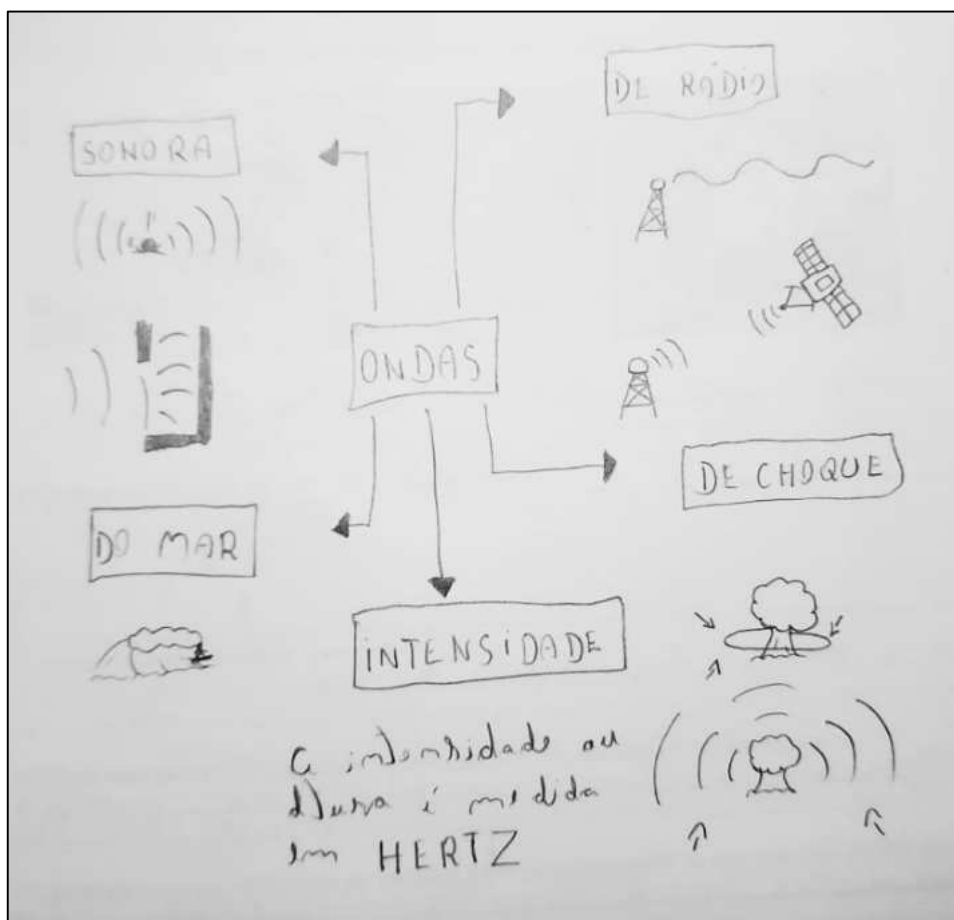 DE RÁDIO
SONORA
ONDAS
DE CHOQUE
DO MAR
iNTENSiDADE
a intensidade ou
altura é medida
em HERTZ